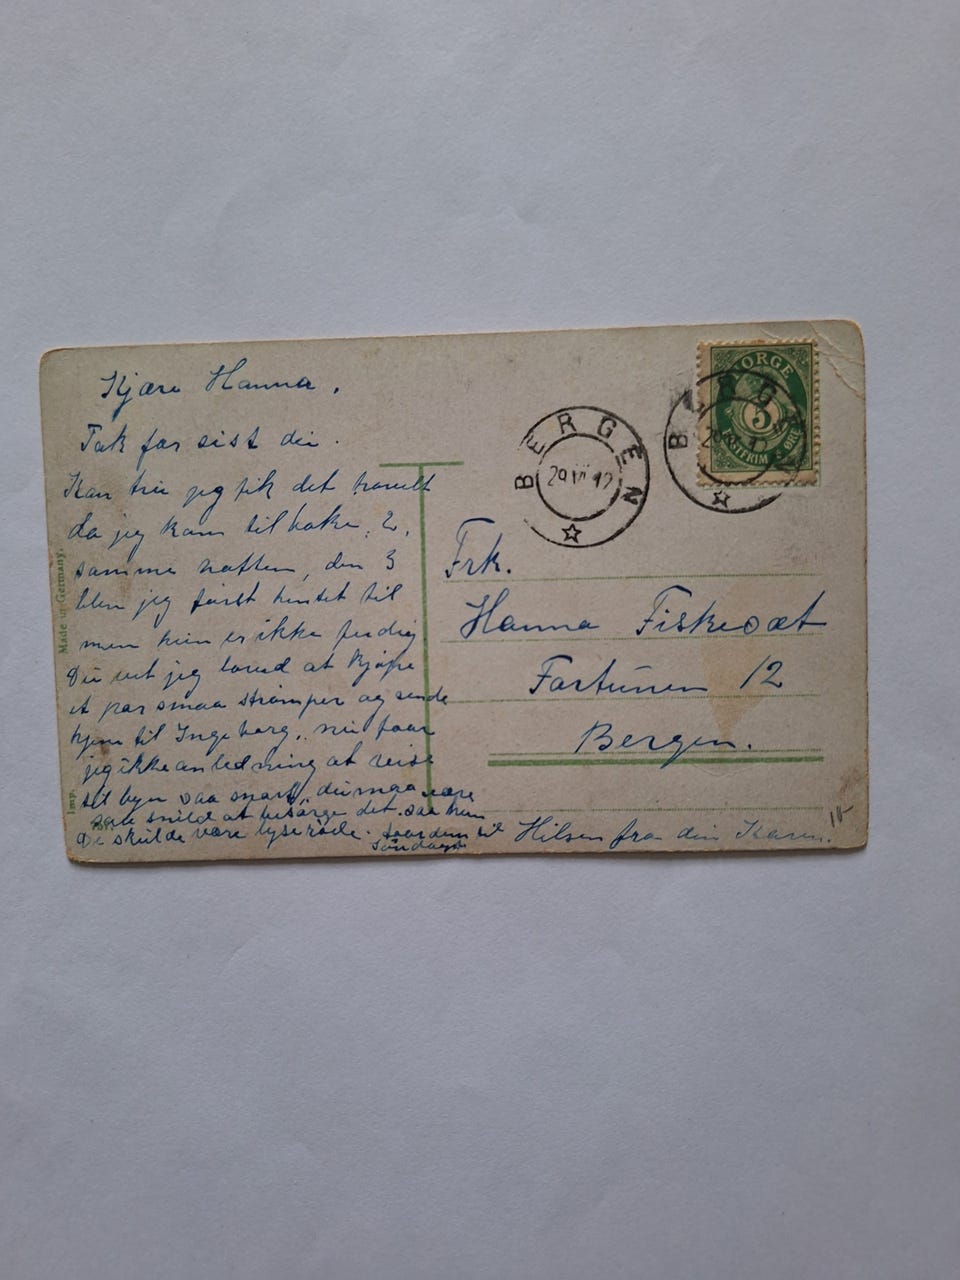 Kjære Hanna,
Tak for sist du.
Kan tru jeg fik det travelt
da jeg kom tilbake, 2,
samme natten, den 3
blev jeg først hentet til
men hun er ikke ferdig
Du vet jeg loved at kjøpe
et par smaa strømper og sende
hjem til Ingeborg, nu faar
jeg ikke anledning at reise
til byen saa snart, du maa være
snild at besørge det. saa hun
De skulde være lyserøde. faar dem til
Søndagen
Hilsen fra din Karen.
Made in Germany.
Imp.
BERGEN
29 VII 12
NORGE
5
POSTFRIM
5 ØRE
Frk.
Hanna Fiskesæt
Fortunen 12
Bergen.